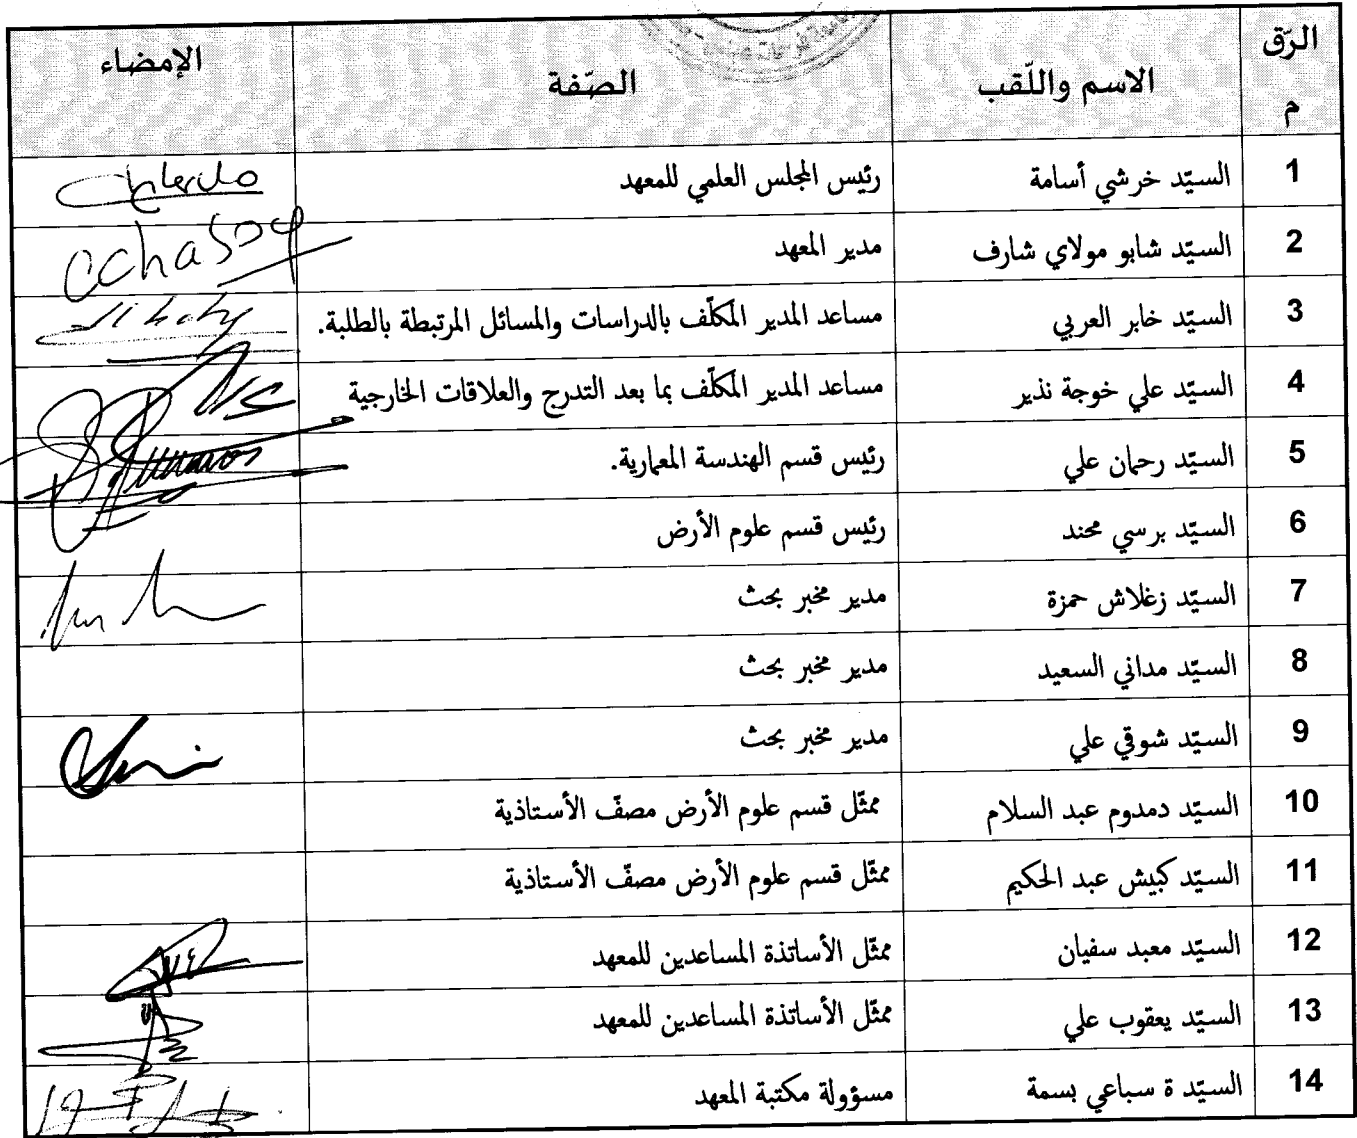 الرّق
م
الاسم واللّقب
الصّفة
الإمضاء
1 السيّد خرشي أسامة رئيس المجلس العلمي للمعهد
2 السيّد شابو مولاي شارف مدير المعهد
3 السيّد خابر العربي مساعد المدير المكلّف بالدراسات والمسائل المرتبطة بالطلبة.
4 السيّد علي خوجة نذير مساعد المدير المكلّف بما بعد التدرج والعلاقات الخارجية
5 السيّد رحمان علي رئيس قسم الهندسة المعمارية.
6 السيّد برسي محند رئيس قسم علوم الأرض
7 السيّد زغلاش حمزة مدير مخبر بحث
8 السيّد مداني السعيد مدير مخبر بحث
9 السيّد شوقي علي مدير مخبر بحث
10 السيّد دمدوم عبد السلام ممثّل قسم علوم الأرض مصفّ الأستاذية
11 السيّد كبيش عبد الحكيم ممثّل قسم علوم الأرض مصفّ الأستاذية
12 السيّد معبد سفيان ممثّل الأساتذة المساعدين للمعهد
13 السيّد يعقوب علي ممثّل الأساتذة المساعدين للمعهد
14 السيّد ة سباعي بسمة مسؤولة مكتبة المعهد